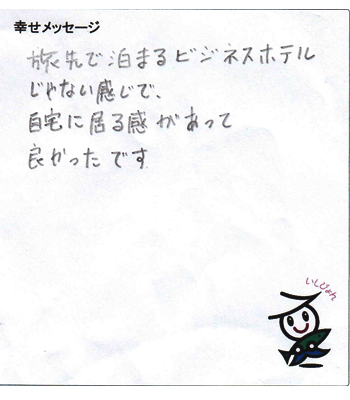 幸せメッセージ
旅先で泊まるビジネスホテル
じゃない感じで、
自宅に居る感があって
良かったです
いしぴょん